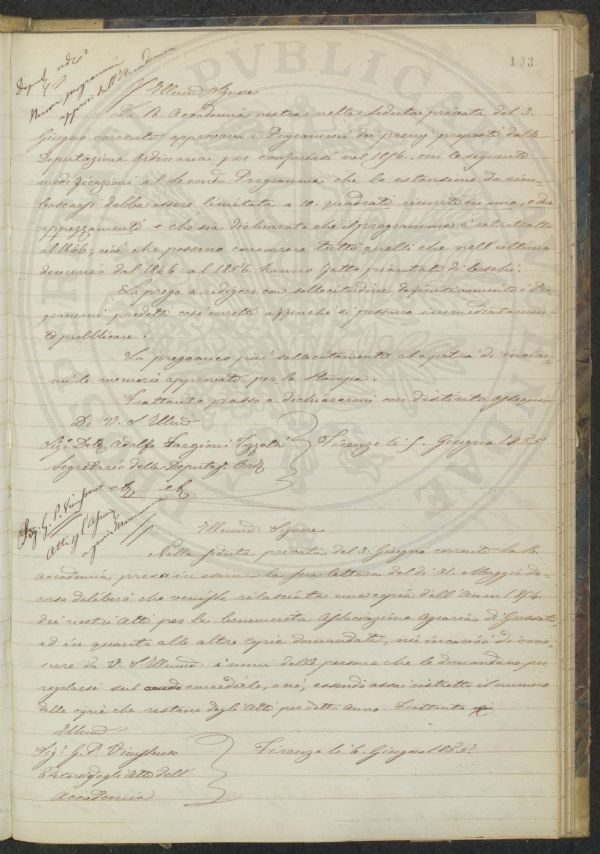 103
Deput. ordin.
Nuovi programmi
approv. dall'Accademia
Illmo Signore
La R. Accademia nostra nella seduta privata del 3.
Giugno corrente approvava i Programmi dei premj proposti dalla
Deputazione Ordinaria per conferirsi nel 1856. con le seguenti
modificazioni al secondo Programma che la estensione da rim-
boscarsi debba essere limitata a 10. quadrati riuniti in uno, o due
appezzamenti e che sia dichiarato che il programma è retrotratto
al 1846; cioè che possono concorrere tutti quelli che nell'ultimo
decennio dal 1846 al 1856. hanno fatto piantate di boschi.
La prego a redigere con sollecitudine definitivamente i Pro
grammi predetti così corretti affinchè si possano immediatamen-
te pubblicare.
La prego anco più sollecitamente che potrà di inviar-
mi le memorie approvate per la stampa.
Frattanto passo a dichiararmi con distinto ossequio
Di V. S. Illma
Sig. Dott. Adolfo Targioni Tozzetti
Firenze li 5. Giugno 1855
Segretario della Deputaz. Ord.
Sig. G. P. Vieusseux
Atti
Illmo Signore
Nella seduta privata del 3. Giugno corrente la R.
Accademia presa in esame la sua lettera del dì 31. Maggio de-
corso deliberò che venisse rilasciata una copia dell'Anno 1854.
dei nostri Atti per la benemerita Associazione Agraria di Grosseto,
ed in quanto alle altre copie domandate, mi incaricò di cono-
scere da V. S. Illma i nomi delle persone che le domandano per
regolarsi sul concederle, o nò, essendo assai ristretto il numero
delle copie che restano degli Atti per detto Anno. Frattanto
Illmo
Sig. G. P. Vieusseux
Firenze li 6. Giugno 1855
Editore degli Atti dell'
Accademia